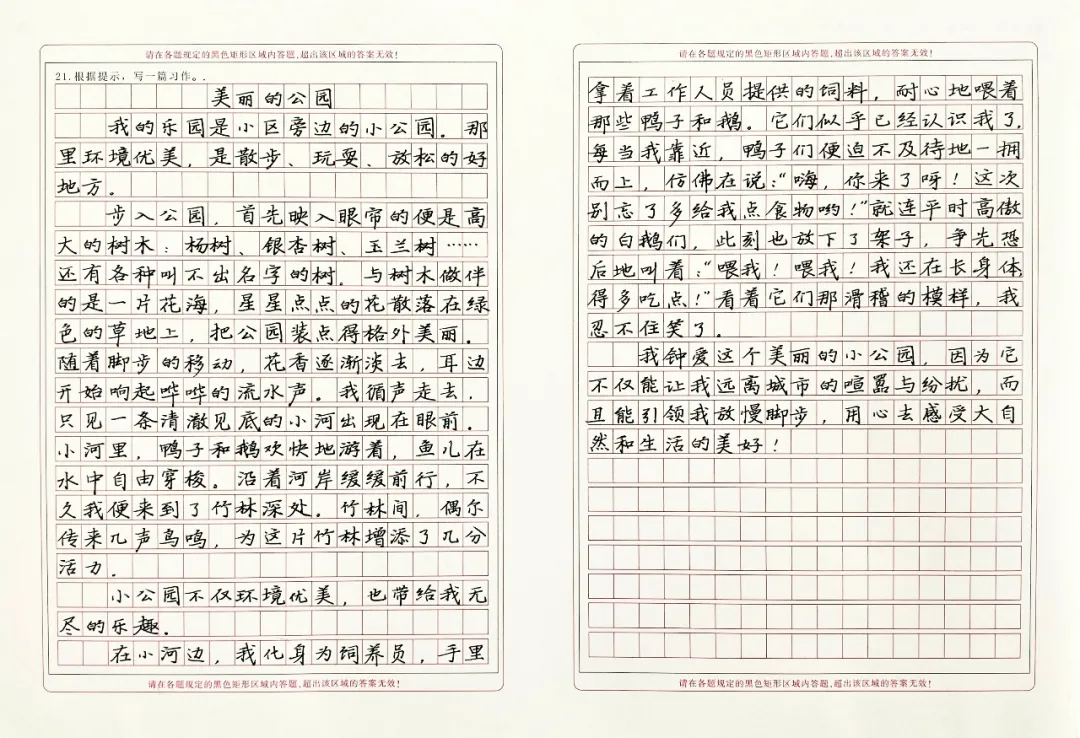 请在各题规定的黑色矩形区域内答题,超出该区域的答案无效!
21.根据提示，写一篇习作。.
美丽的公园
我的乐园是小区旁边的小公园。那
里环境优美，是散步、玩耍、放松的好
地方。
步入公园，首先映入眼帘的便是高
大的树木：杨树、银杏树、玉兰树……
还有各种叫不出名字的树。与树木做伴
的是一片花海，星星点点的花散落在绿
色的草地上，把公园装点得格外美丽。
随着脚步的移动，花香逐渐淡去，耳边
开始响起哗哗的流水声。我循声走去，
只见一条清澈见底的小河出现在眼前。
小河里，鸭子和鹅欢快地游着，鱼儿在
水中自由穿梭。沿着河岸缓缓前行，不
久我便来到了竹林深处。竹林间，偶尔
传来几声鸟鸣，为这片竹林增添了几分
活力。
小公园不仅环境优美，也带给我无
尽的乐趣。
在小河边，我化身为饲养员，手里
请在各题规定的黑色矩形区域内答题,超出该区域的答案无效!
请在各题规定的黑色矩形区域内答题,超出该区域的答案无效!
拿着工作人员提供的饲料，耐心地喂着
那些鸭子和鹅。它们似乎已经认识我了，
每当我靠近，鸭子们便迫不及待地一拥
而上，仿佛在说：“嗨，你来了呀！这次
别忘了多给我点食物哟！”就连平时高傲
的白鹅们，此刻也放下了架子，争先恐
后地叫着：“喂我！喂我！我还在长身体，
得多吃点！”看着它们那滑稽的模样，我
忍不住笑了。
我钟爱这个美丽的小公园，因为它
不仅能让我远离城市的喧嚣与纷扰，而
且能引领我放慢脚步，用心去感受大自
然和生活的美好！
请在各题规定的黑色矩形区域内答题,超出该区域的答案无效!